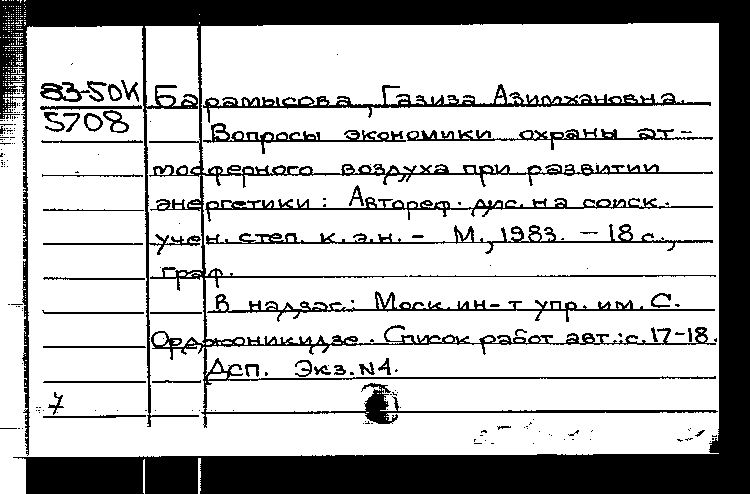 83-50К Барамысова, Газиза Азимхановна.
5708 Вопросы экономики охраны ат-
мосферного воздуха при развитии
энергетики: Автореф. дис. на соиск.
учен. степ. к.э.н. - М., 1983. - 18 с.,
граф.
В надзаг.: Моск. ин-т упр. им. С.
Орджоникидзе. Список работ авт.: с. 17-18.
Дсп. Экз. N4.
7